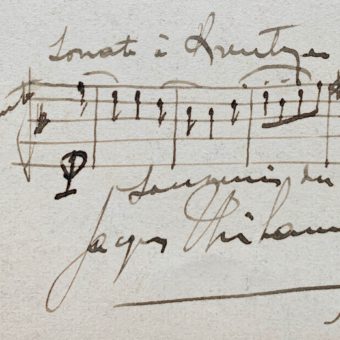 Sonate à Kreutzer
P
Souvenir du
Jacques Thibau